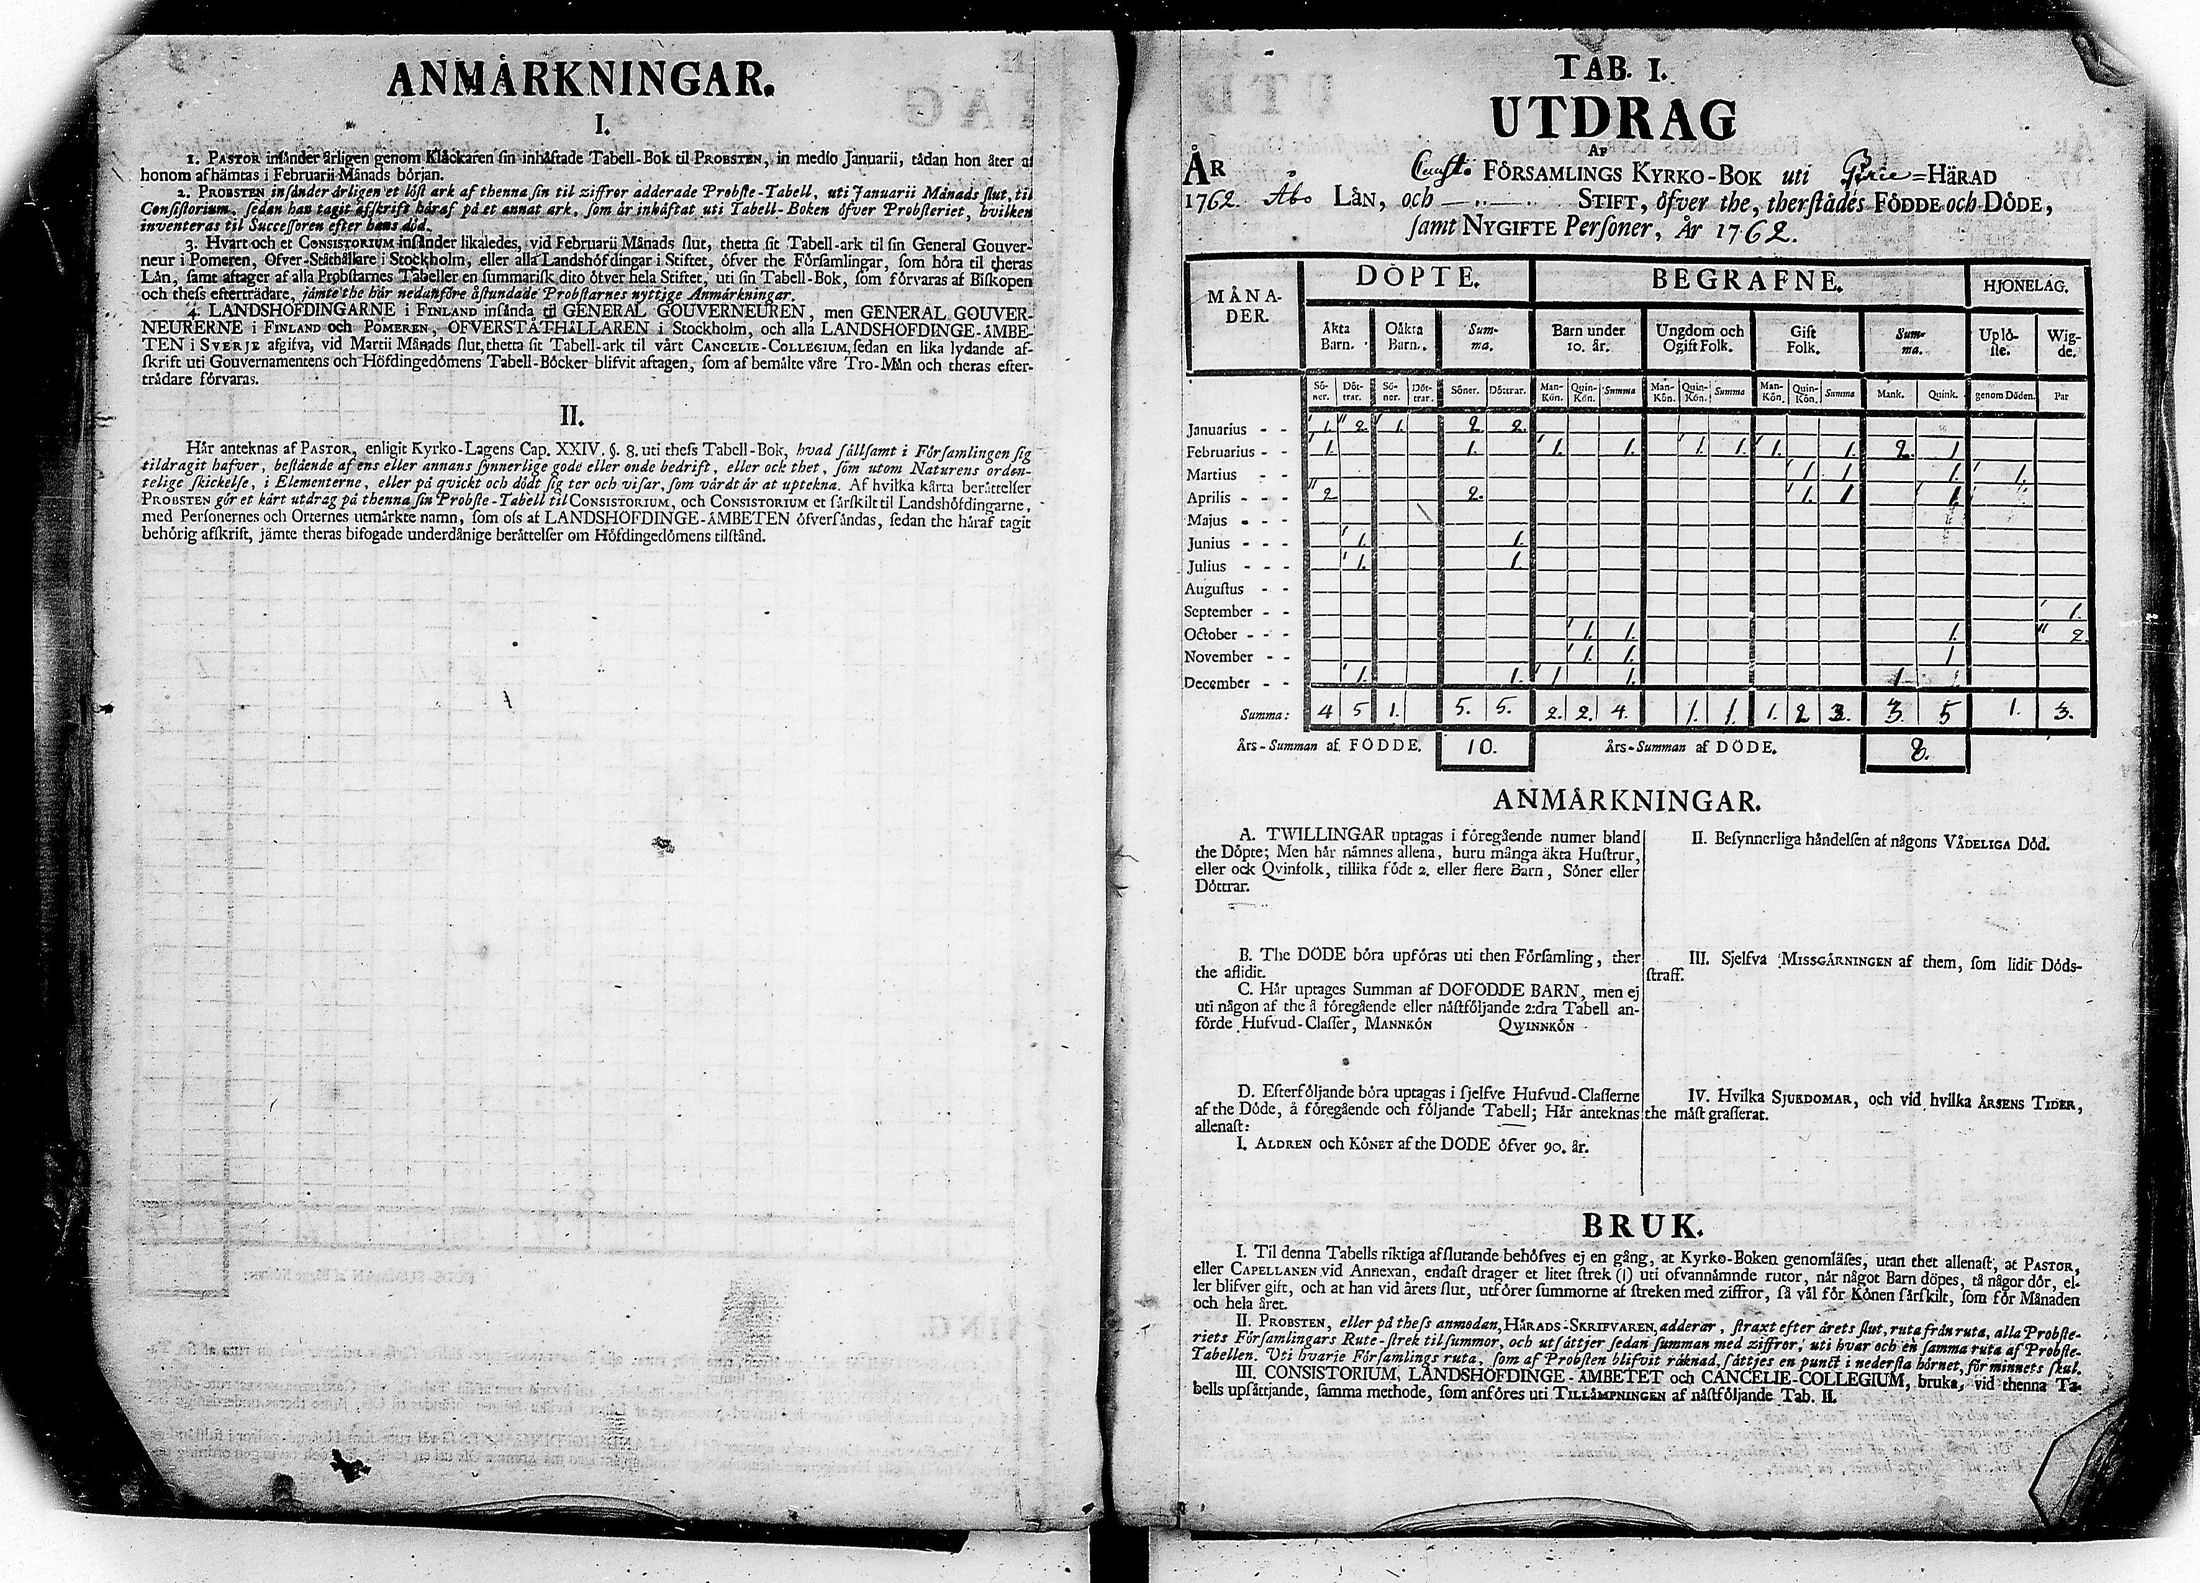 ANMÅRKNINGAR.
I.
1. PASTOR insånder årligen genom Klåckaren sin inhåftade Tabell-Bok til PROBSTEN, in medio Januarii, tådan hon åter af
honom afhåmtas i Februarii Månads början.
2. PROBSTEN insånder årligen et löst ark af thenna sin til ziffror adderade Probste-Tabell, uti Januarii Månads slut, til
Consistorium, sedan han tagit afskrift håraf på et annat ark, som år inhåftat uti Tabell-Boken öfver Probsteriet, hvilken
inventeras til Successoren efter hans död.
3. Hvart och et CONSISTORIUM insånder likaledes, vid Februarii Månads slut, thetta sit Tabell-ark til sin General Gouver-
neur i Pomeren, Öfver-Ståthållare i Stockholm, eller alla Landshöfdingar i Stiftet, öfver the Församlingar, som höra til theras
Lån, samt aftager af alla Probstarnes Tabeller en summarisk dito öfver hela Stiftet, uti sin Tabell-Bok, som förvaras af Biskopen
och thess efterträdare, jåmte the hår nedanföre åstundade Probstarnes nyttige Anmårkningar.
4. LANDSHÖFDINGARNE i FINLAND insånda til GENERAL GOUVERNEUREN, men GENERAL GOUVER-
NEURERNE i FINLAND och POMEREN, ÖFVERSTÅTHÅLLAREN i Stockholm, och alla LANDSHÖFDINGE-ÅMBE-
TEN i SVERJE afgifva, vid Martii Månads slut, thetta sit Tabell-ark til vårt CANCELIE-COLLEGIUM, sedan en lika lydande af-
skrift uti Gouvernamentens och Höfdingedömens Tabell-Böcker blifvit aftagen, som af bemålte våre Tro-Mån och theras efter-
trådare förvaras.
II.
Hår anteknas af PASTOR, enligit Kyrko-Lagens Cap. XXIV. §. 8. uti thess Tabell-Bok, hvad sållsamt i Församlingen sig
tildragit hafver, bestående af ens eller annans synnerlige gode eller onde bedrift, eller ock thet, som utom Naturens orden-
telige skickelse, i Elementerne, eller på qvickt och dödt sig ter och visar, som vårdt år at uptekna. Af hvilka kårta beråttelser
PROBSTEN gör et kårt utdrag på thenna sin Probste-Tabell til CONSISTORIUM, och CONSISTORIUM et sårskilt til Landshöfdingarne,
med Personernes och Orternes utmårkte namn, som oss af LANDSHÖFDINGE-ÅMBETEN öfversåndas, sedan the håraf tagit
behörig afskrift, jåmte theras bifogade underdånige beråttelser om Höfdingedömens tilstånd.
TAB. I.
UTDRAG
AF
ÅR FÖRSAMLINGS KYRKO-BOK uti HÅRAD
1762. Åbo LÅN, och — „ — STIFT, öfver the, therstådes FÖDDE och DÖDE,
samt NYGIFTE Personer, År 1762.
MÅNA-DER. DÖPTE. BEGRAFNE. HJONELAG.
Åkta Barn. Oåkta Barn. Sum-ma. Barn under 10. år. Ungdom och Ogift Folk. Gift Folk. Sum-ma. Uplö-ste. Wig-de.
Sö-ner. Döt-trar. Sö-ner. Döt-trar. Söner. Döttrar. Man-Kön. Quin-Kön. Summa Man-Kön. Quin-Kön. Summa Man-Kön. Quin-Kön. Summa Mank. Quink. genom Döden. Par
Januarius - - 1. 2. 1. 2. 2.
Februarius - - 1. 1. 1. 1. 1. 1. 1. 1. 2. 1.
Martius - - 1. 1. 1. 1.
Aprilis - - - 2. 2. 1. 1. 1.
Majus - - -
Junius - - - 1. 1.
Julius - - - 1. 1.
Augustus - -
September - - 1.
October - - - 1. 1. 1. 2.
November - - 1. 1. 1
December - - 1. 1. 1 1. 1
Summa: 4 5 1. 5. 5. 2. 2. 4. 1. 1. 1. 2 3. 3. 5 1. 3.
Års-Summan af FÖDDE. 10. Års-Summan af DÖDE. 8.
ANMÅRKNINGAR.
A. TWILLINGAR uptagas i föregående numer bland
the Döpte; Men hår nåmnes allena, huru många åkta Hustrur,
eller ock Qvinfolk, tillika födt 2. eller flere Barn, Söner eller
Döttrar.
B. The DÖDE böra upföras uti then Församling, ther
the aflidit.
C. Hår uptages Summan af DÖFÖDDE BARN, men ej
uti någon af the å föregående eller nåstföljande 2:dra Tabell an-
förde Hufvud-Classer, MANNKÖN QWINNKÖN
D. Efterföljande böra uptagas i sjelfve Hufvud-Classerne
af the Döde, å föregående och följande Tabell; Hår anteknas
allenast:
I. ALDREN och KÖNET af the DÖDE öfver 90. år.
II. Besynnerliga håndelsen af någons VÅDELIGA Död.
III. Sjelfva MISSGÅRNINGEN af them, som lidit Döds-
straff.
IV. Hvilka SJUKDOMAR, och vid hvilka ÅRSENS TIDER,
the måst grasserat.
BRUK.
I. Til denna Tabells riktiga afslutande behöfves ej en gång, at Kyrko-Boken genomläses, utan thet allenast, at PASTOR,
eller CAPELLANEN vid Annexan, endast drager et litet strek (|) uti ofvannåmnde rutor, når något Barn döpes, tå någor dör, el-
ler blifver gift, och at han vid årets slut, utförer summorne af streken med ziffror, så vål för Könen sårskilt, som för Månaden
och hela året.
II. PROBSTEN, eller på thess anmodan, HÅRADS-SKRIFVAREN, adderar, straxt efter årets slut, ruta från ruta, alla Probste-
riets Församlingars Rute-strek til summor, och utsåttjer sedan summan med ziffror, uti hvar och en samma ruta af Probste-
Tabellen. Uti hvarje Församlings ruta, som af Probsten blifvit råknad, såttjes en punct i nedersta hörnet, för minnets skul.
III. CONSISTORIUM, LANDSHÖFDINGE-ÅMBETET och CANCELIE-COLLEGIUM, bruka, vid thenna Ta-
bells upsåttjande, samma methode, som anföres uti TILLÅMPNINGEN af nåstföljande Tab. II.